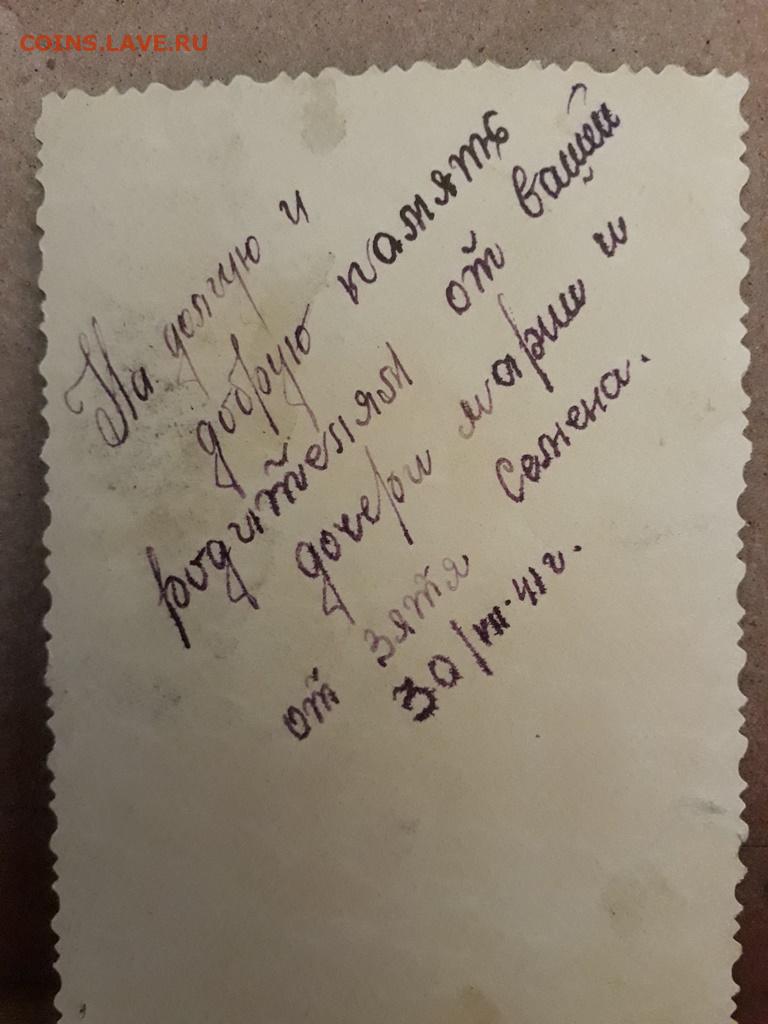 COINS.LAVE.RU
На долгую и
добрую память
родителям от вашей
дочери марии и
от зятя семена.
30/VII-41г.